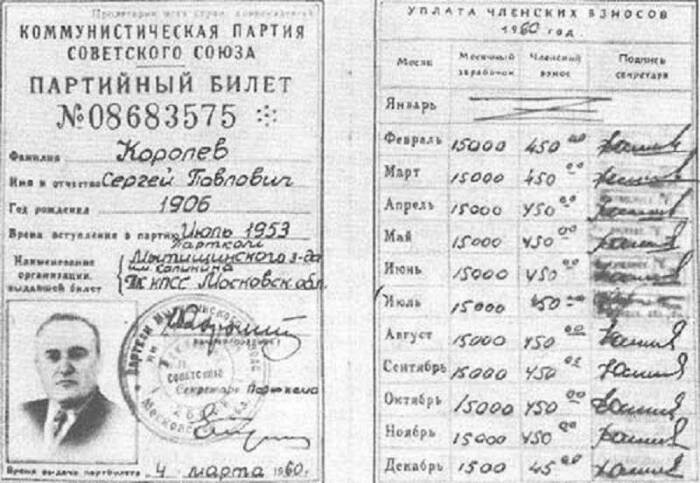 Пролетарии всех стран, соединяйтесь!
КОММУНИСТИЧЕСКАЯ ПАРТИЯ
СОВЕТСКОГО СОЮЗА
ПАРТИЙНЫЙ БИЛЕТ
№08683575
Фамилия Королев
Имя и отчество Сергей Павлович
Год рождения 1906
Время вступления в партию Июль 1953
Наименование организации, выдавшей билет
Парткол
Мытищинского з-да
им. Калинина
КПСС Московск. обл.
Секретарь Парткома
Время выдачи партбилета 4 марта 1960 г.
УПЛАТА ЧЛЕНСКИХ ВЗНОСОВ
1960 ГОД
Месяц Месячный заработок Членский взнос Подпись секретаря
Январь
Февраль 15000 450 00
Март 15000 450 00
Апрель 15000 450 00
Май 15000 450 00
Июнь 15000 450 00
Июль 15000 450 00
Август 15000 450 00
Сентябрь 15000 450 00
Октябрь 15000 450 00
Ноябрь 15000 450 00
Декабрь 1500 45 00